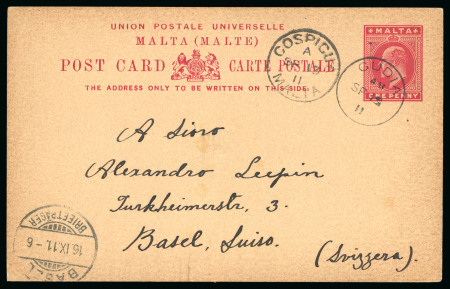 UNION POSTALE UNIVERSELLE
MALTA (MALTE)
POST CARD CARTE POSTALE
THE ADDRESS ONLY TO BE WRITTEN ON THIS SIDE.
MALTA
ONE PENNY
COSPICUA
A
SP
11
MALTA
GUDIA
SP
11
A Sioro
Alexandro Leepin
Turkheimerstr. 3.
Basel, Suiso.
(Svizzera).
BASEL
16.IX.11.-6
BRIEFTRÄGER